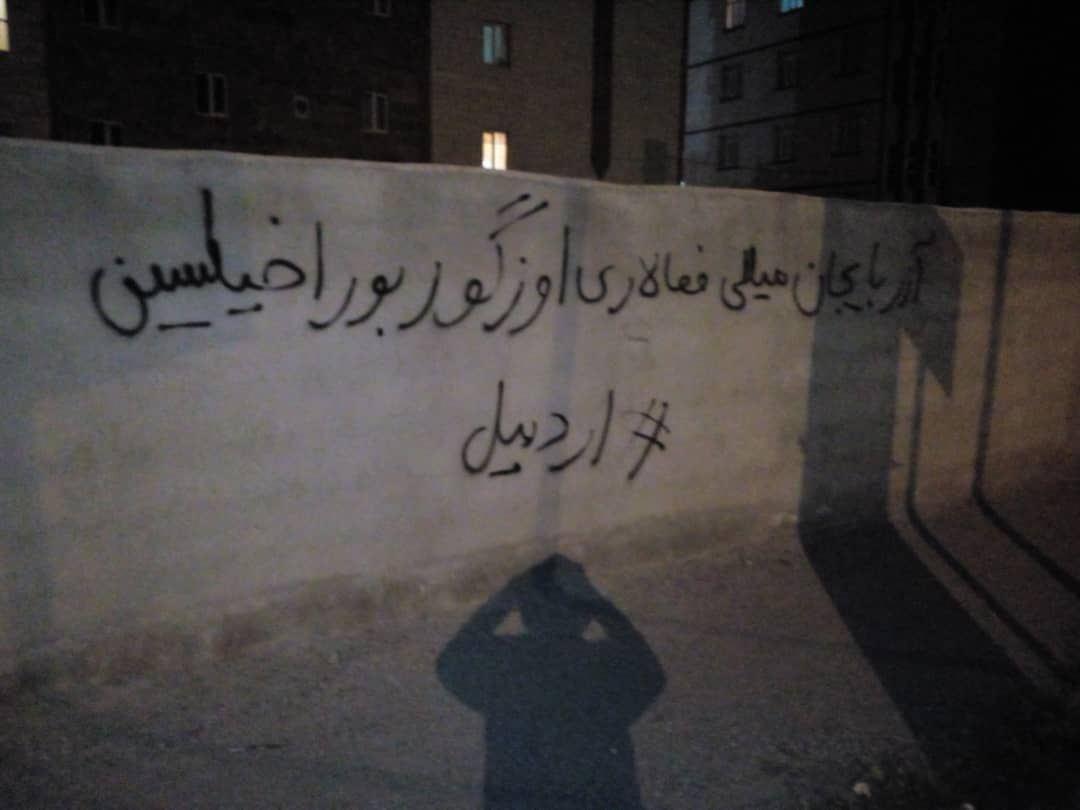 آزربایجان میللی فعالاری اوزگور بوراخیلسین
#اردبیل